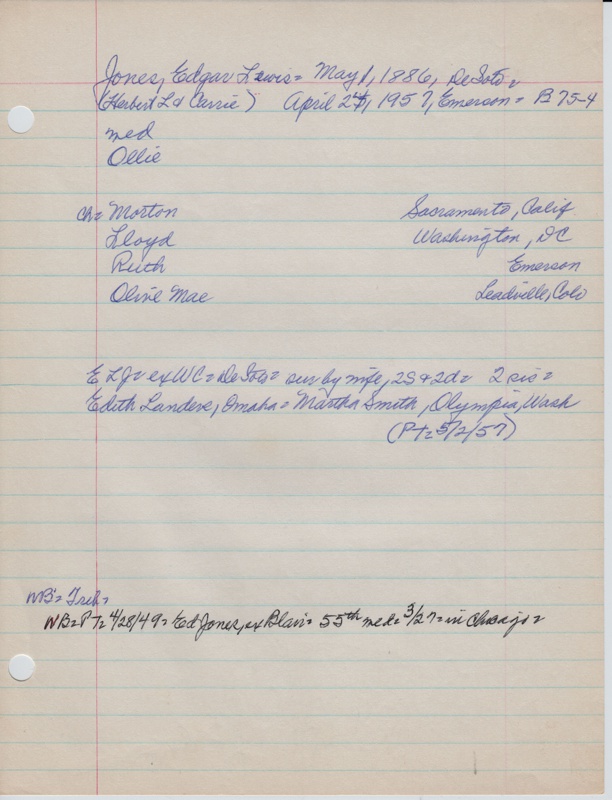 Jones, Edgar Lewis = May 1, 1886, DeSoto =
(Herbert L & Carrie) April 24, 1957, Emerson = B 75-4
med
Ollie
ch = Morton Sacramento, Calif
Lloyd Washington, DC
Ruth Emerson
Olive Mae Leadville, Colo
ELJ = ex WC = DeSoto = sur by wife, 2S & 2d = 2 sis =
Edith Landers, Omaha = Martha Smith, Olympia, Wash
(PT = 5/2/57)
WB = Trib =
WB = PT = 4/28/49 = Ed Jones, ex Blair = 55th med = 3/27 = in Chicago =